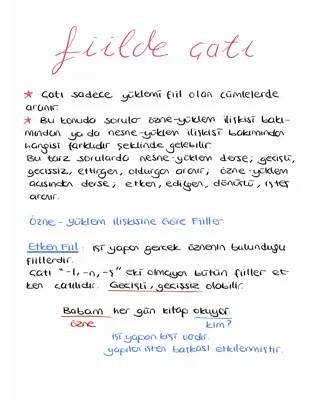 fiilde çatı
* Çatı sadece yüklemi fiil olan cümlelerde
aranır.
* Bu konuda sorular özne-yüklem ilişkisi bakı-
mından ya da nesne-yüklem ilişkisi bakımından
hangisi farklıdır şeklinde gelebilir.
Bu tarz sorularda nesne-yüklem derse; geçişli,
geçissiz, ettirgen, oldurgan aranır, özne-yüklem
açısından derse; etken, edilgen, dönüşlü, işteş
aranır.
Özne-yüklem ilişkisine Göre Fiiller
Etken Fiil: işi yapan gerçek öznenin bulunduğu
fiillerdir.
Çatı "-l, -n, -ş" eki almayan bütün fiiller et-
ken çatılıdır. Geçişli, geçissiz olabilir.
Babam her gün kitap okuyor.
özne kim?
işi yapan kişi vardır.
yapılan işten başkası etkilenmiştir.